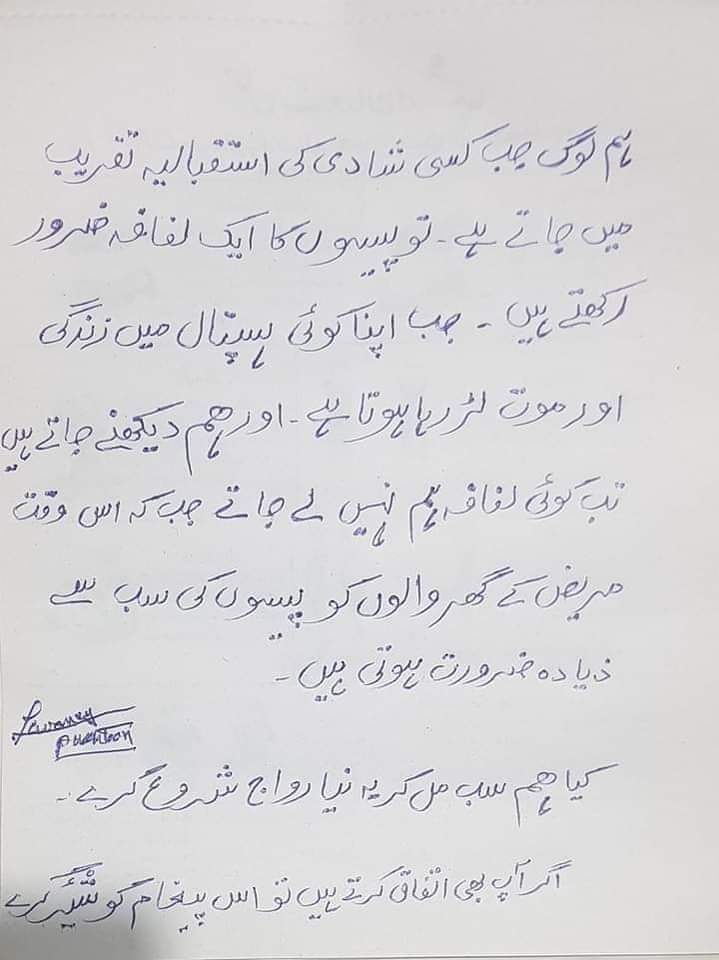 ہم لوگ جب کسی شادی کی استقبالیہ تقریب
میں جاتے ہے۔ تو پیسوں کا ایک لفافہ ضرور
رکھتے ہیں ۔ جب اپنا کوئی ہسپتال میں زندگی
اور موت لڑ رہا ہوتا ہے ۔ اور ہم دیکھنے جاتے ہیں
تب کوئی لفافہ ہم نہیں لے جاتے جب کہ اس وقت
مریض کے گھر والوں کو پیسوں کی سب سے
ذیادہ ضرورت ہوتی ہیں ۔
pukhtoon
کیا ہم سب مل کر یہ نیا رواج شروع کرے ۔
اگر آپ بھی اتفاق کرتے ہیں تو اس پیغام کو شئیر کرے